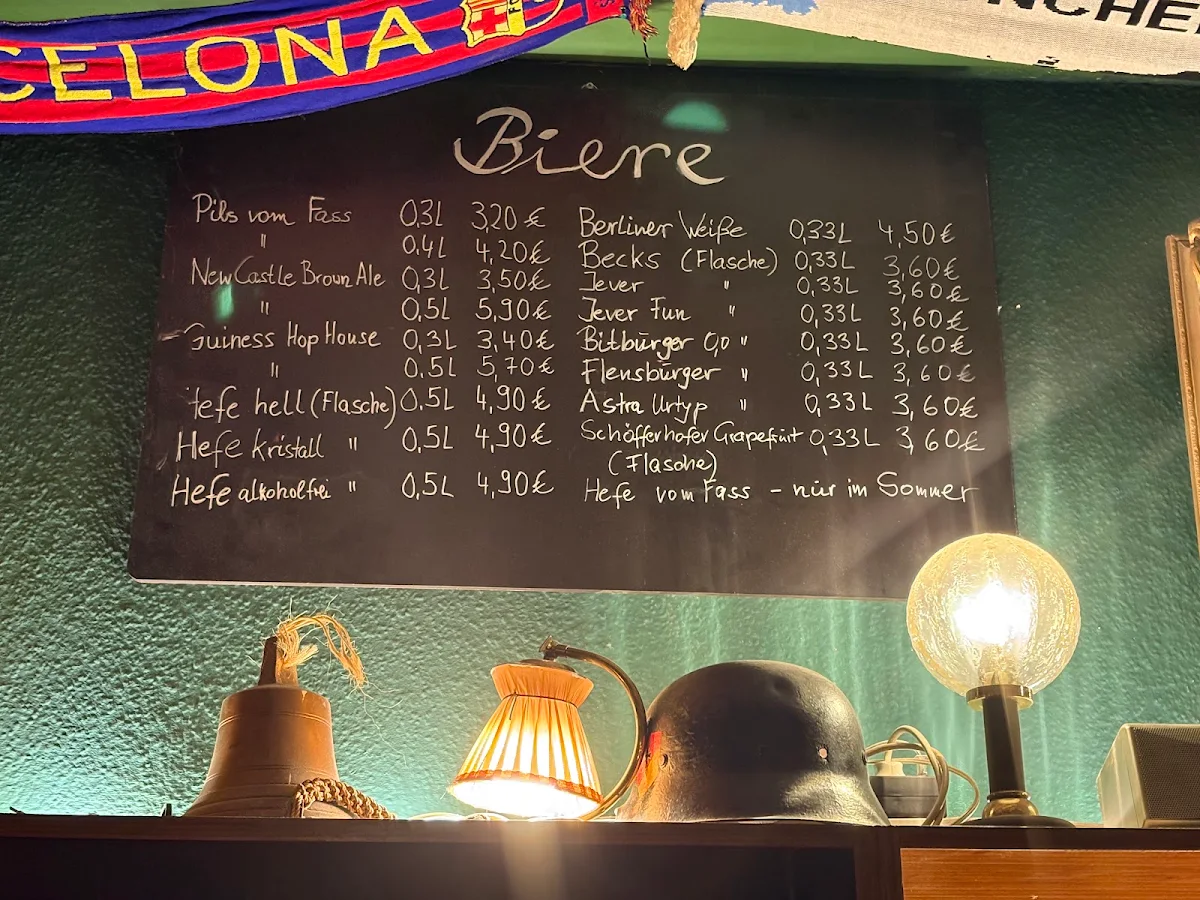 CELONA
NCHE
Biere
Pils vom Fass 0,3L 3,20 €
" 0,4L 4,20€
NewCastle Brown Ale 0,3L 3,50€
" 0,5L 5,90€
Guiness Hop House 0,3L 3,40€
" 0,5L 5,70€
Hefe hell (Flasche) 0,5L 4,90€
Hefe Kristall " 0,5L 4,90€
Hefe alkoholfrei " 0,5L 4,90€
Berliner Weiße 0,33L 4,50€
Becks (Flasche) 0,33L 3,60€
Jever " 0,33L 3,60€
Jever Fun " 0,33L 3,60€
Bitburger 0,0 " 0,33L 3,60€
Flensburger " 0,33L 3,60€
Astra Urtyp " 0,33L 3,60€
Schöfferhofer Grapefruit 0,33L 3,60€
(Flasche)
Hefe vom Fass - nur im Sommer